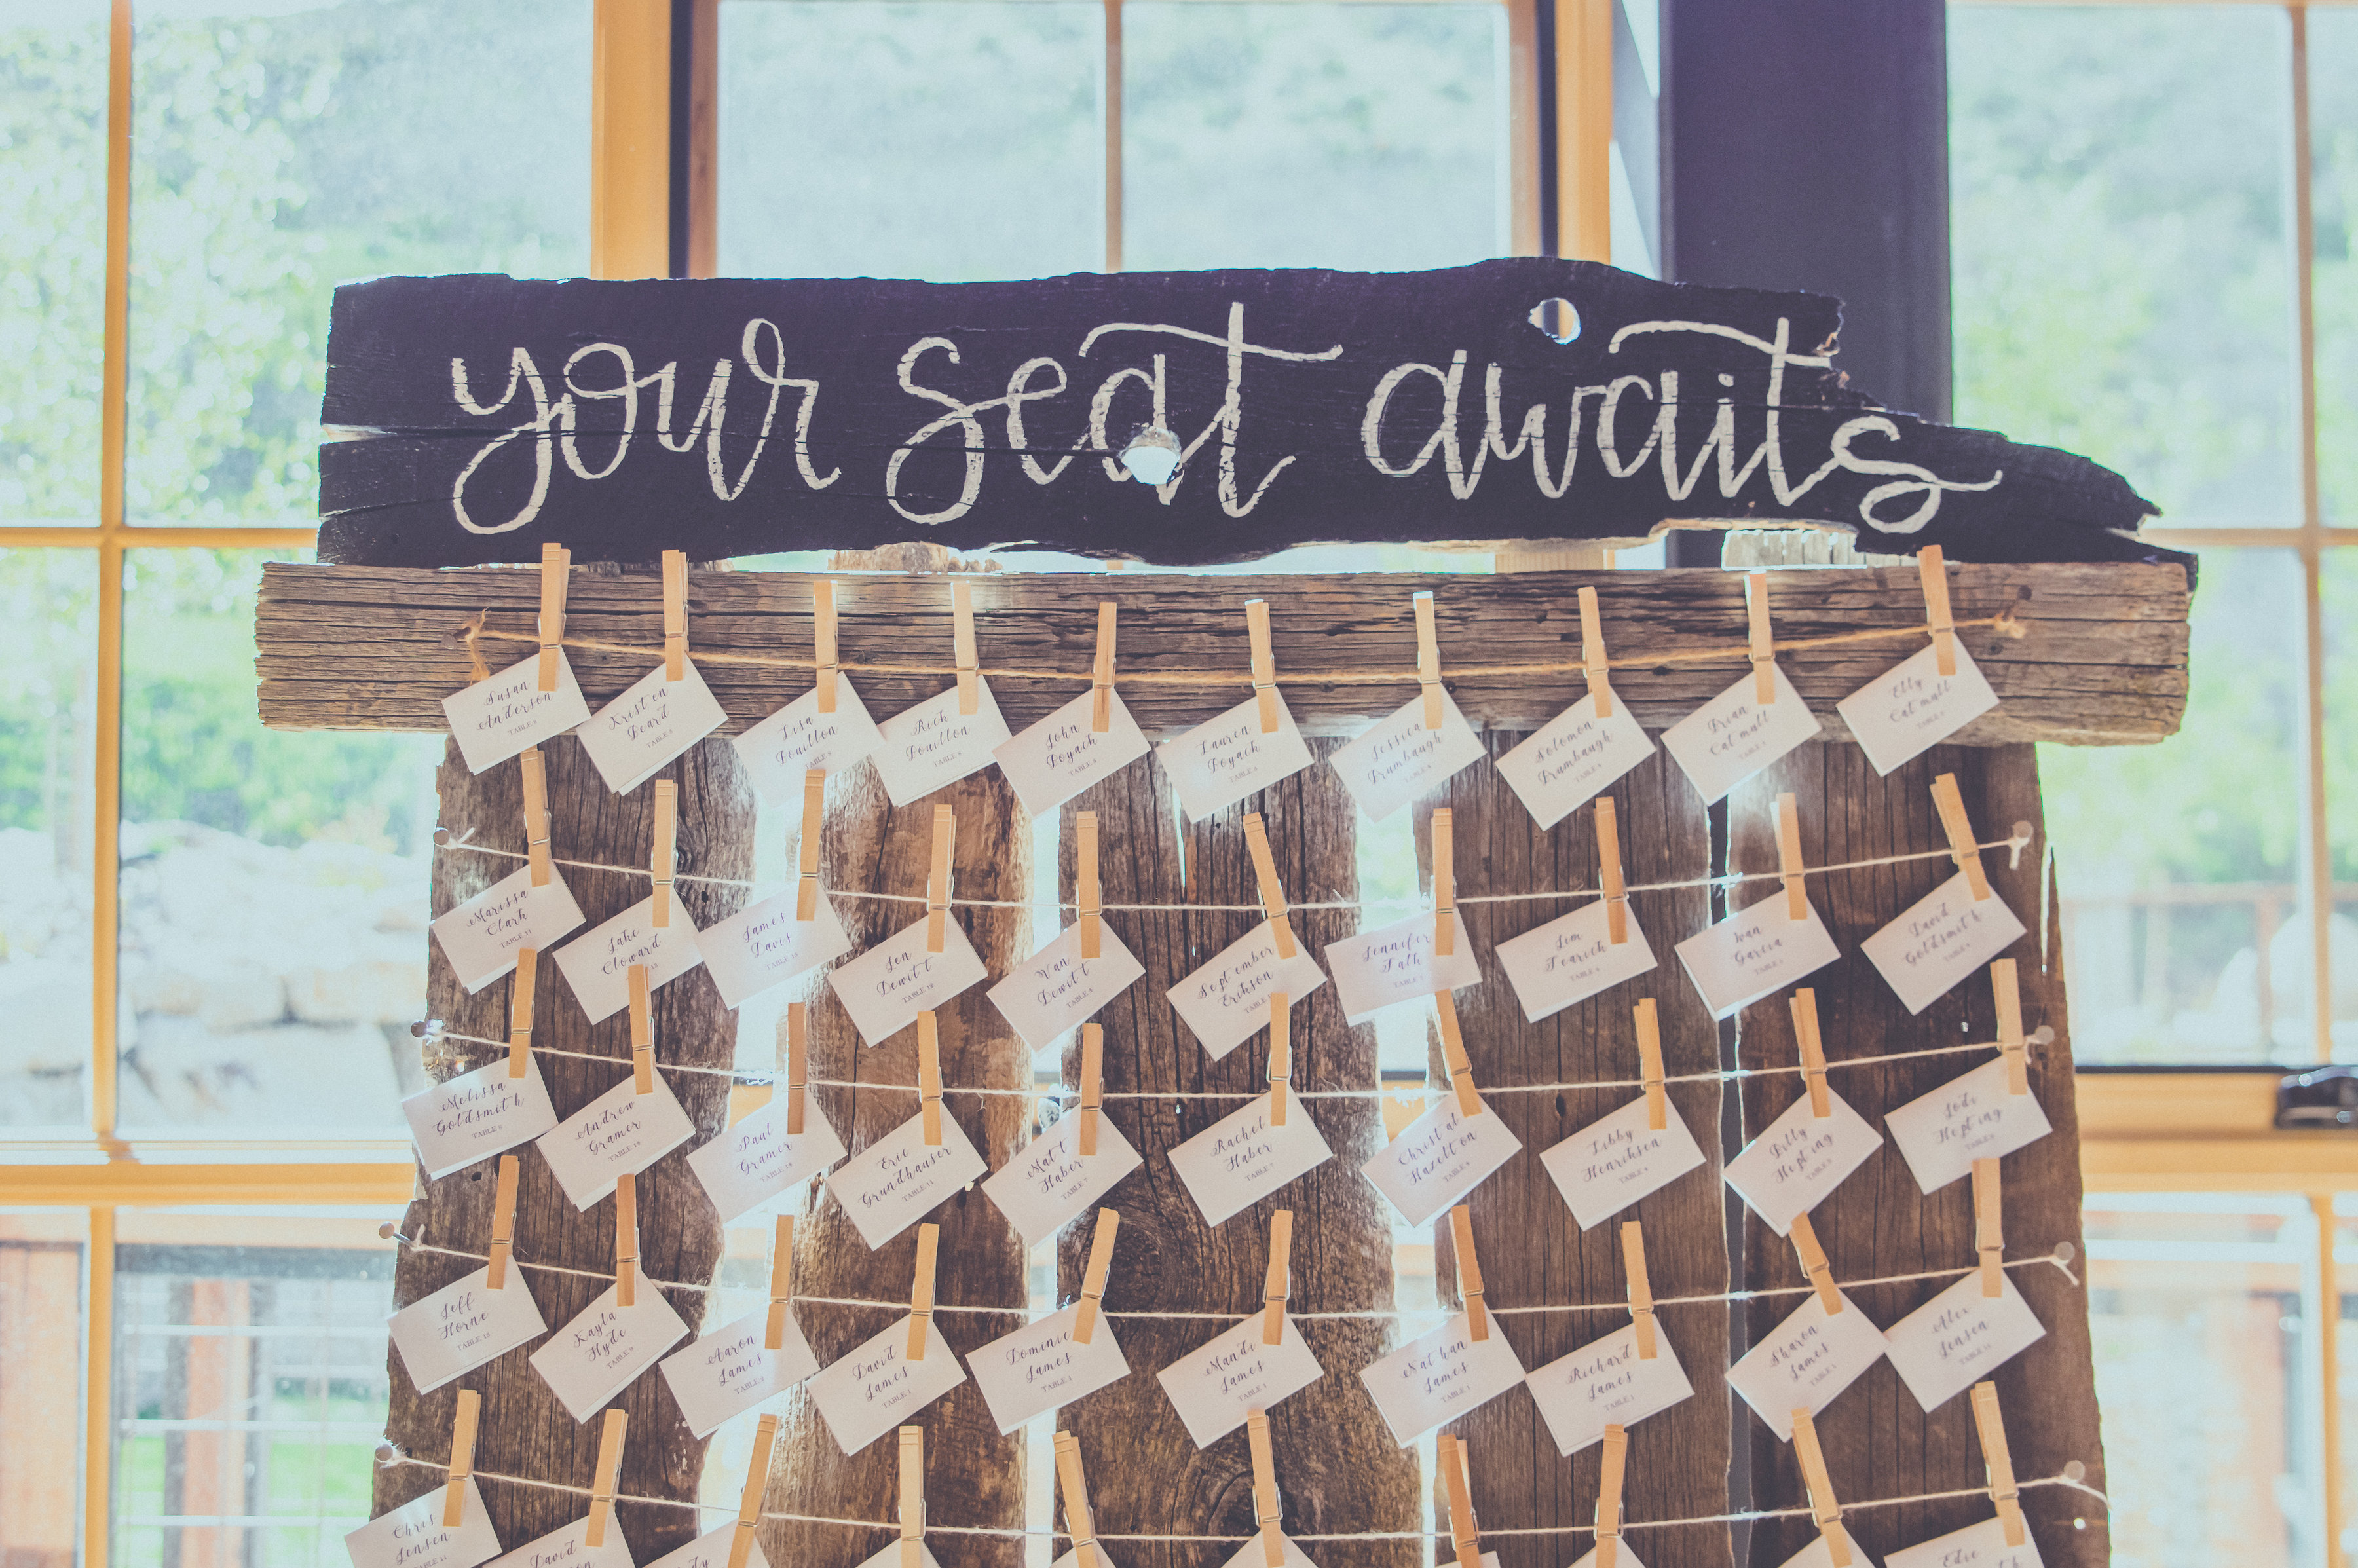 your seat awaits
Susan
Anderson
Kristen
Beard
Lisa
Bouillon
Rich
Bouillon
John
Boyack
TABLE
Lauren
Boyack
TABLE
Jessica
Brumbaugh
TABLE
Solomon
Brumbaugh
TABLE
Brian
Catmull
TABLE
Elly
Catmull
TABLE
Marissa
Clark
TABLE 11
Jake
Cloward
James
Davis
TABLE
Jen
Dewitt
TABLE 10
Van
Dewitt
TABLE
September
Erikson
TABLE
Jennifer
Falk
TABLE
Jim
TABLE
Ivan
Garcia
TABLE
David
Goldsmith
TABLE
Melissa
Goldsmith
TABLE
Andrew
Gramer
TABLE 14
Paul
Gramer
TABLE 14
Eric
Grandhauser
TABLE 11
Matt
Haber
TABLE 7
Rachel
Haber
TABLE 7
Christal
Hazelton
TABLE
Libby
Henrikson
TABLE
Billy
Hepting
TABLE
Jodi
Hepting
TABLE
Jeff
Horne
TABLE 12
Kayla
Hyde
TABLE
Aaron
James
TABLE
David
James
TABLE 1
Dominic
James
TABLE
Mandi
James
TABLE 1
Nathan
James
TABLE
Richard
James
TABLE
Sharon
James
TABLE
Alex
Jensen
TABLE 11
Chris
Jensen
TABLE 11
David
Edie